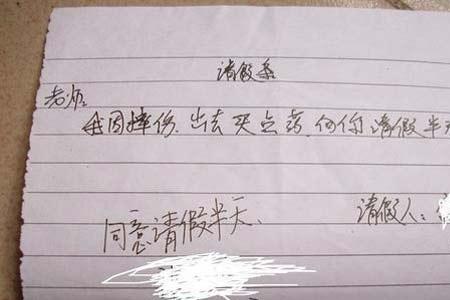 请假条
老师:
我因摔伤.出去买点药,向你请假半天
请假人:
同意请假半天.